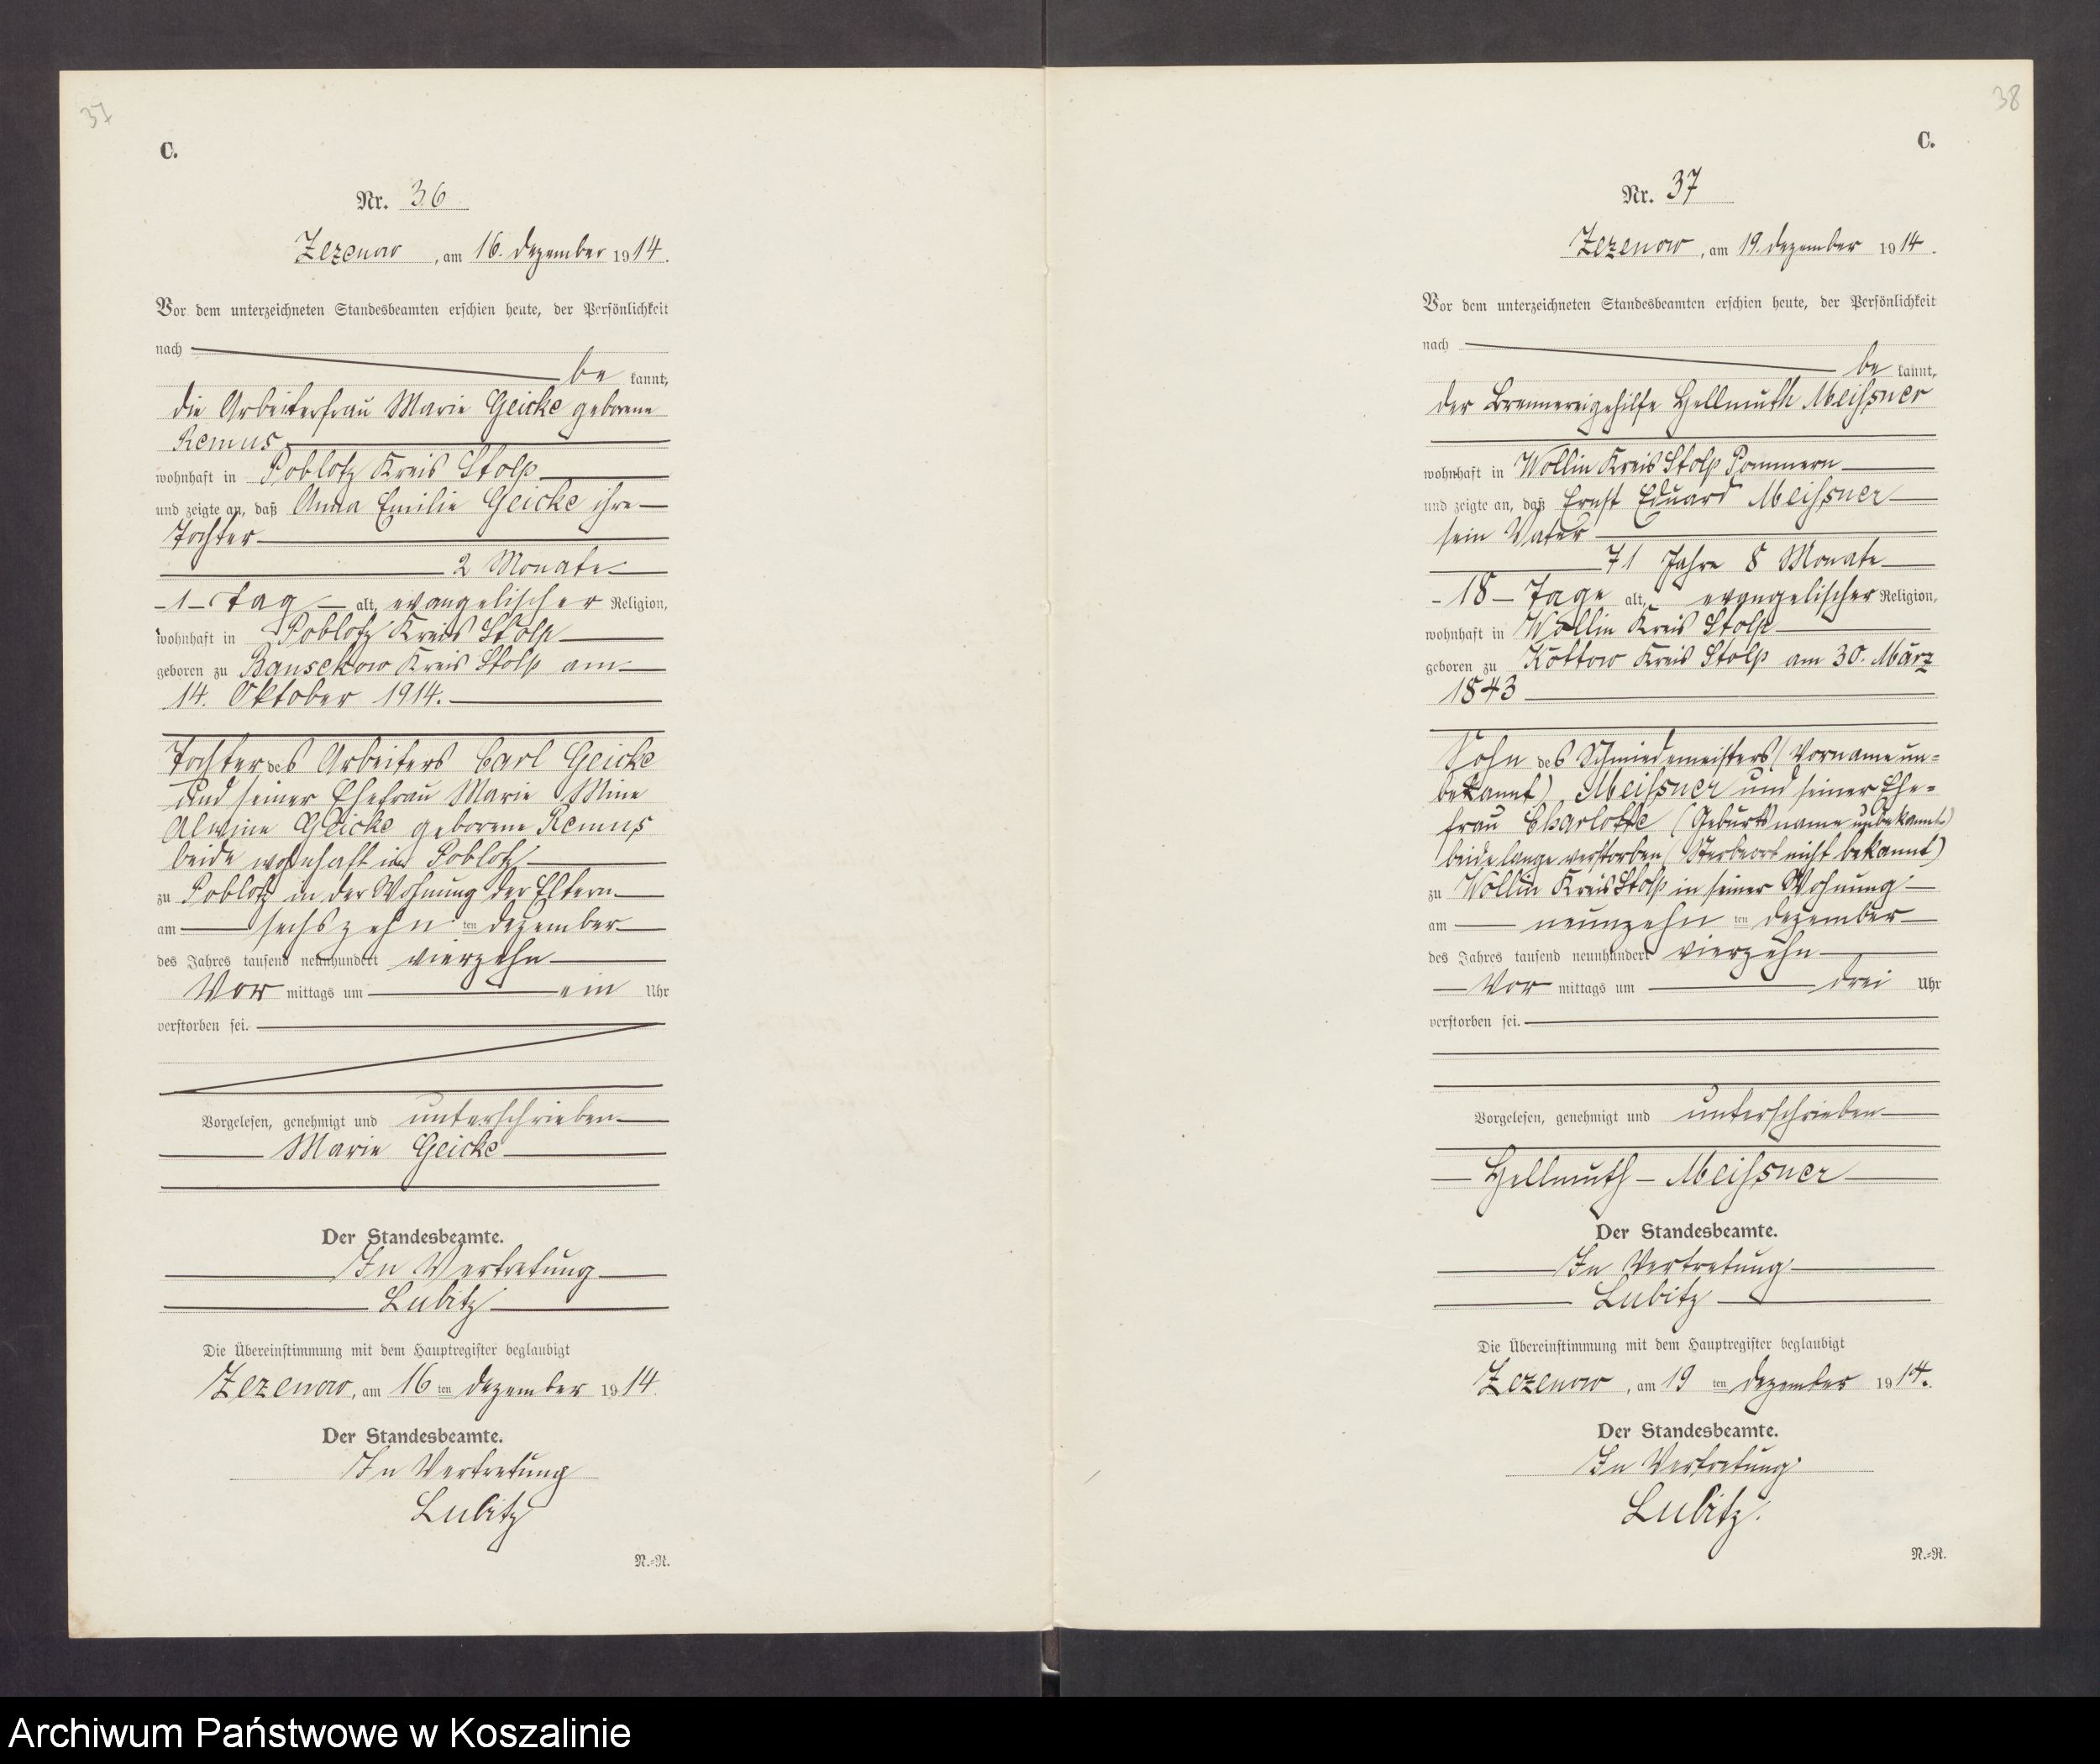 37
C.
Nr. 36
Zezenow, am 16. Dezember 1914.
Vor dem unterzeichneten Standesbeamten erschien heute, der Persönlichkeit
nach
be kannt,
die Arbeiterfrau Marie Geicke geborene
Remus
wohnhaft in Poblotz Kreis Stolp
und zeigte an, daß Anna Emilie Geicke ihre
Tochter
2 Monate
1 Tag alt, evangelischer Religion,
wohnhaft in Poblotz Kreis Stolp
geboren zu Bansekow Kreis Stolp am
14. Oktober 1914.
Tochter des Arbeiters Carl Geicke
und seiner Ehefrau Marie Mine
Alwine Geicke geborene Remus
beide wohnhaft in Poblotz
zu Poblotz in der Wohnung der Eltern
am sechszehn ten Dezember
des Jahres tausend neunhundert vierzehn
Vor mittags um ein Uhr
verstorben sei.
Vorgelesen, genehmigt und unterschrieben
Marie Geicke
Der Standesbeamte.
In Vertretung
Lubitz
Die Übereinstimmung mit dem Hauptregister beglaubigt
Zezenow, am 16 ten Dezember 1914.
Der Standesbeamte.
In Vertretung
Lubitz
N.=R.
38
C.
Nr. 37
Zezenow, am 19. Dezember 1914.
Vor dem unterzeichneten Standesbeamten erschien heute, der Persönlichkeit
nach
be kannt,
der Brennereigehilfe Hellmuth Meißner
wohnhaft in Wollin Kreis Stolp Pommern
und zeigte an, daß Ernst Eduard Meißner
sein Vater
71 Jahre 8 Monate
18 Tage alt, evangelischer Religion,
wohnhaft in Wollin Kreis Stolp
geboren zu Kottow Kreis Stolp am 30. März
1843
Sohn des Schmiedemeisters (Vorname un=
bekannt) Meißner und seiner Ehe=
frau Charlotte (Geburtsname unbekannt)
beide lange verstorben (Sterbeort nicht bekannt)
zu Wollin Kreis Stolp in seiner Wohnung
am neunzehn ten Dezember
des Jahres tausend neunhundert vierzehn
Vor mittags um drei Uhr
verstorben sei.
Vorgelesen, genehmigt und unterschrieben
Hellmuth Meißner
Der Standesbeamte.
In Vertretung
Lubitz
Die Übereinstimmung mit dem Hauptregister beglaubigt
Zezenow, am 19 ten Dezember 1914.
Der Standesbeamte.
In Vertretung
Lubitz.
N.=R.
Archiwum Państwowe w Koszalinie